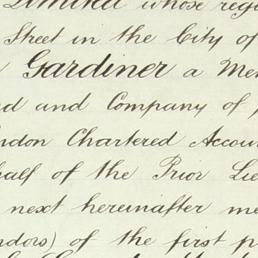 Limited whose regi
Street in the City of
Gardiner a Mem
nd and Company of
ndon Chartered Accoun
half of the Prior Lie
next hereinafter me
ndors) of the first p